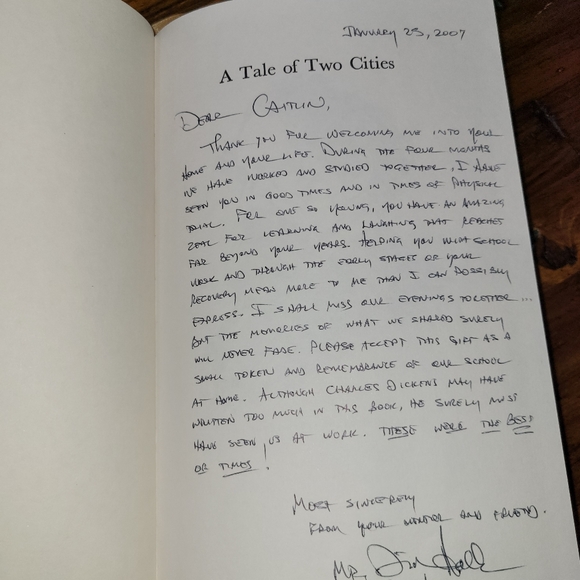 January 23, 2007
A Tale of Two Cities
Dear Caitlin,
Thank you for welcoming me into your
home and your life. During the four months
we have worked and studied together, I have
seen you in good times and in times of physical
trial. For one so young, you have an amazing
zeal for learning and laughing that reaches
far beyond your years. Helping you with school
work and through the early stages of your
recovery mean more to me than I can possibly
express. I shall miss our evenings together...
but the memories of what we shared surely
will never fade. Please accept this gift as a
small token and remembrance of our school
at home. Although Charles Dickens may have
written too much in this book, he surely must
have seen us at work. These were the best
of times!
Most sincerely
from your mentor and friend.
Mr.